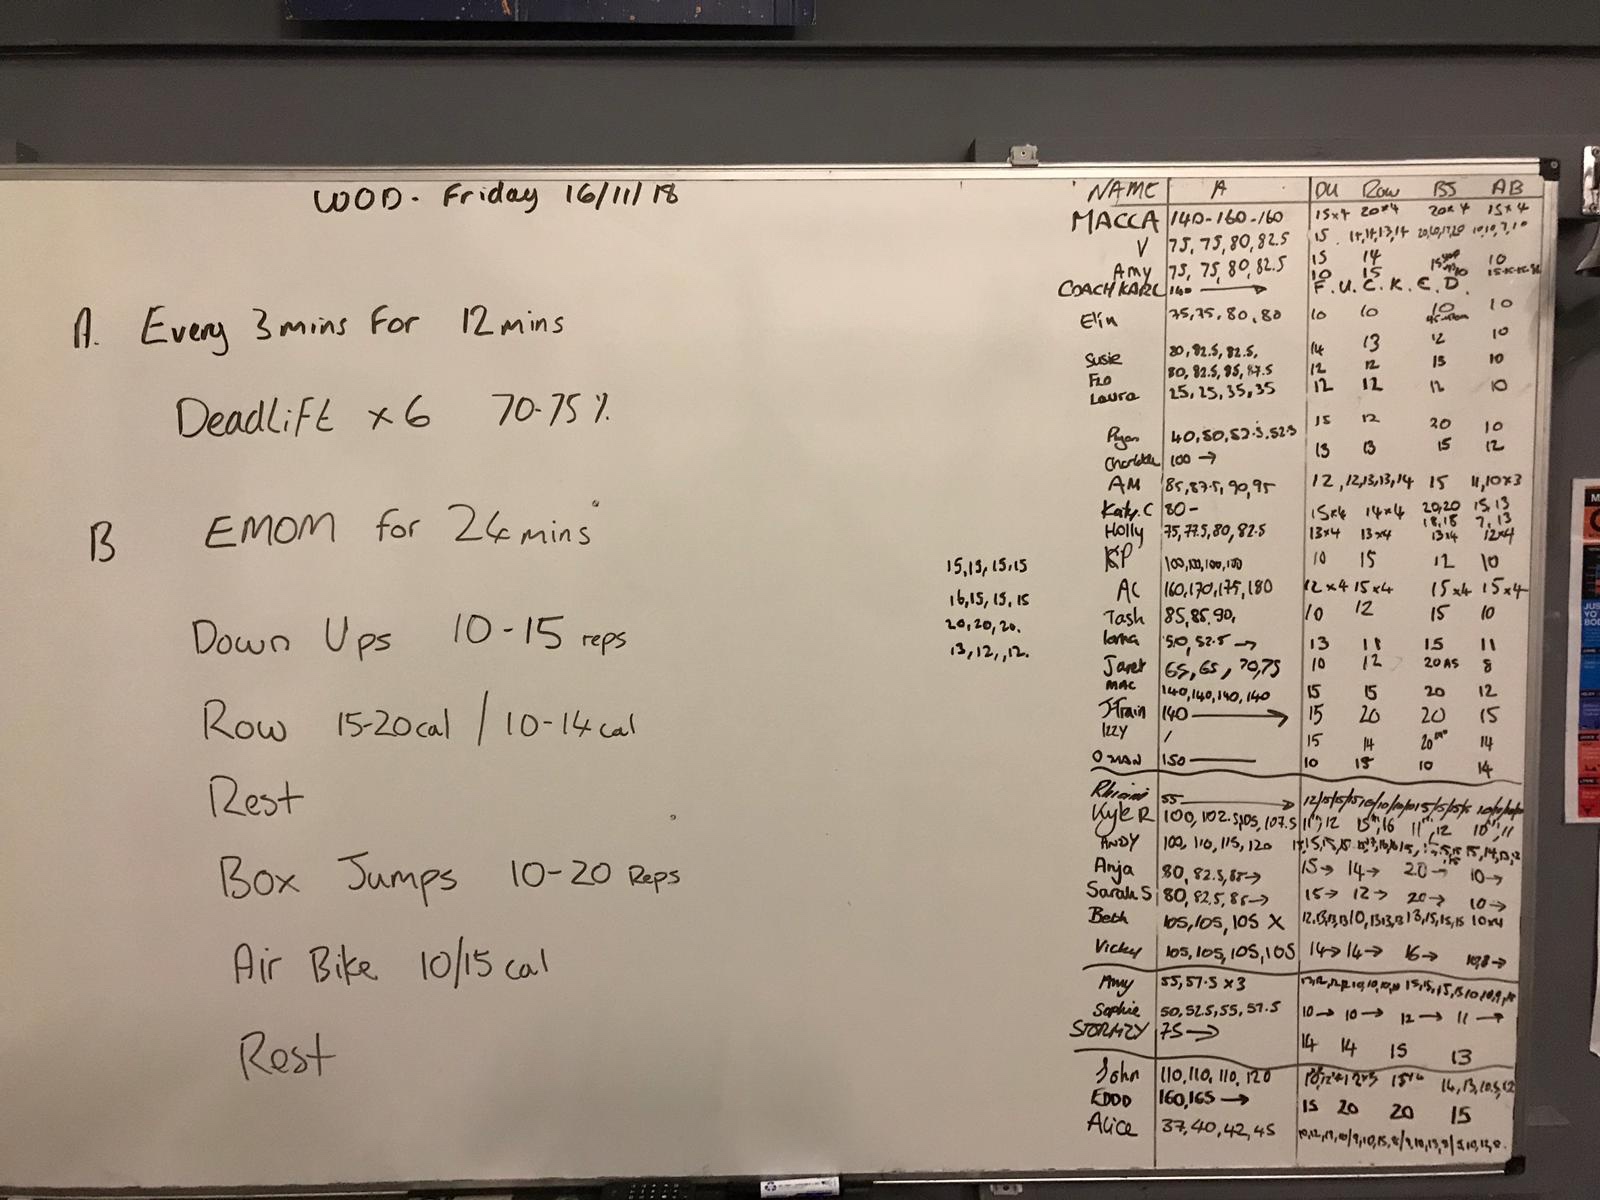 WOD. Friday 16/11/18
A. Every 3 mins For 12 mins
Deadlift x 6 70-75%
B EMOM for 24 mins
Down Ups 10-15 reps
Row 15-20 cal / 10-14 cal
Rest
Box Jumps 10-20 Reps
Air Bike 10/15 cal
Rest
15,15,15,15
16,15,15,15
20,20,20.
13,12,,12.
NAME A DU Row BJ AB
MACCA 140-160-160 15x4 20x4 20x4 15x4
V 75, 75, 80, 82.5 15 14,14,13,14 10,10,7,10
Amy 75, 75, 80, 82.5 15 14 10
COACH KARL 140 → F. U. C. K. E. D.
Elin 75,75, 80, 80 10 10 10 10
Susie 80, 82.5, 82.5, 14 13 12 10
Flo 80, 82.5, 85, 87.5 12 12 15 10
Laura 25, 25, 35, 35 12 12 12 10
Ryan 40,50,52.5,52.5 15 12 20 10
Charlotte 100 → 13 13 15 12
AM 85,87.5, 90,95 12,12,13,13,14 15 11,10x3
Katy.C 80- 15x4 14x4 20,20 18,18 15,13 7,13
Holly 75,77.5,80, 82.5 13x4 13x4 13x4 12x4
KP 100,100,100,100 10 15 12 10
AC 160,170,175,180 12x4 15x4 15x4 15x4
Tash 85,85,90, 10 12 15 10
Lorna 50, 52.5 → 13 11 15 11
Janet 65, 65, 70,75 10 12 20 AS 8
MAC 140,140,140,140 15 15 20 12
J-Train 140 → 15 20 20 15
Izzy / 15 14 20 14
OZMAN 150 — 10 15 10 14
55 →
Kyle R 100, 102.5,105, 107.5 11,12 15,16 11,12 10,11
ANDY 100, 110, 115, 120
Anja 80, 82.5, 85→ 15→ 14→ 20→ 10→
Sarah S 80, 82.5, 85→ 15→ 12→ 20→ 10→
Beth 105,105, 105 X 12,13,13,13 10,13,13,13 13,15,15,15 10x4
Vicky 105,105,105,105 14→ 14→ 16→ 10,8→
Amy 55, 57.5 x 3
Sophie 50, 52.5, 55, 57.5 10→ 10→ 12→ 11→
STORMZY 75→ 14 14 15 13
John 110, 110, 110, 120
EDDD 160,165 → 15 20 20 15
Alice 37, 40, 42, 45